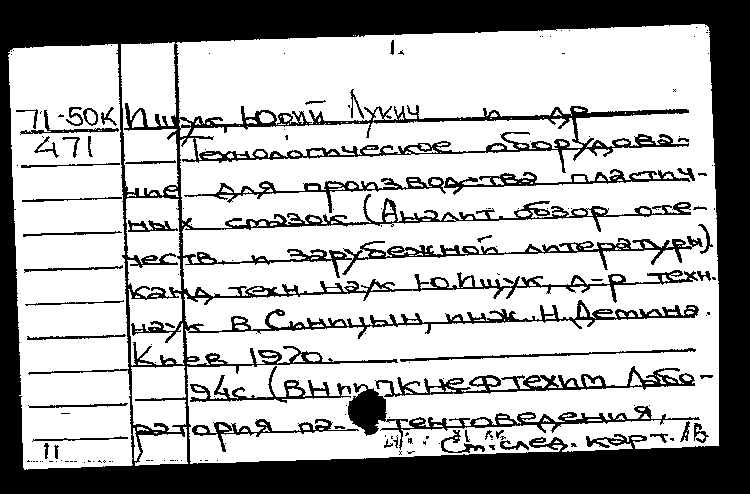 1.
71-50к Ищук, Юрий Лукич и др
471 Технологическое оборудова-
ние для производства пластич-
ных смазок (Аналит. обзор оте-
честв. и зарубежной литературы).
Канд. техн. наук Ю.Ищук, д-р техн.
наук В.Синицын, инж. Н.Демина.
Киев, 1970.
94с. (ВНИИПКНефтехим Лабо-
ратория па-тентоведения,
11 См.след. карт. ЛВ